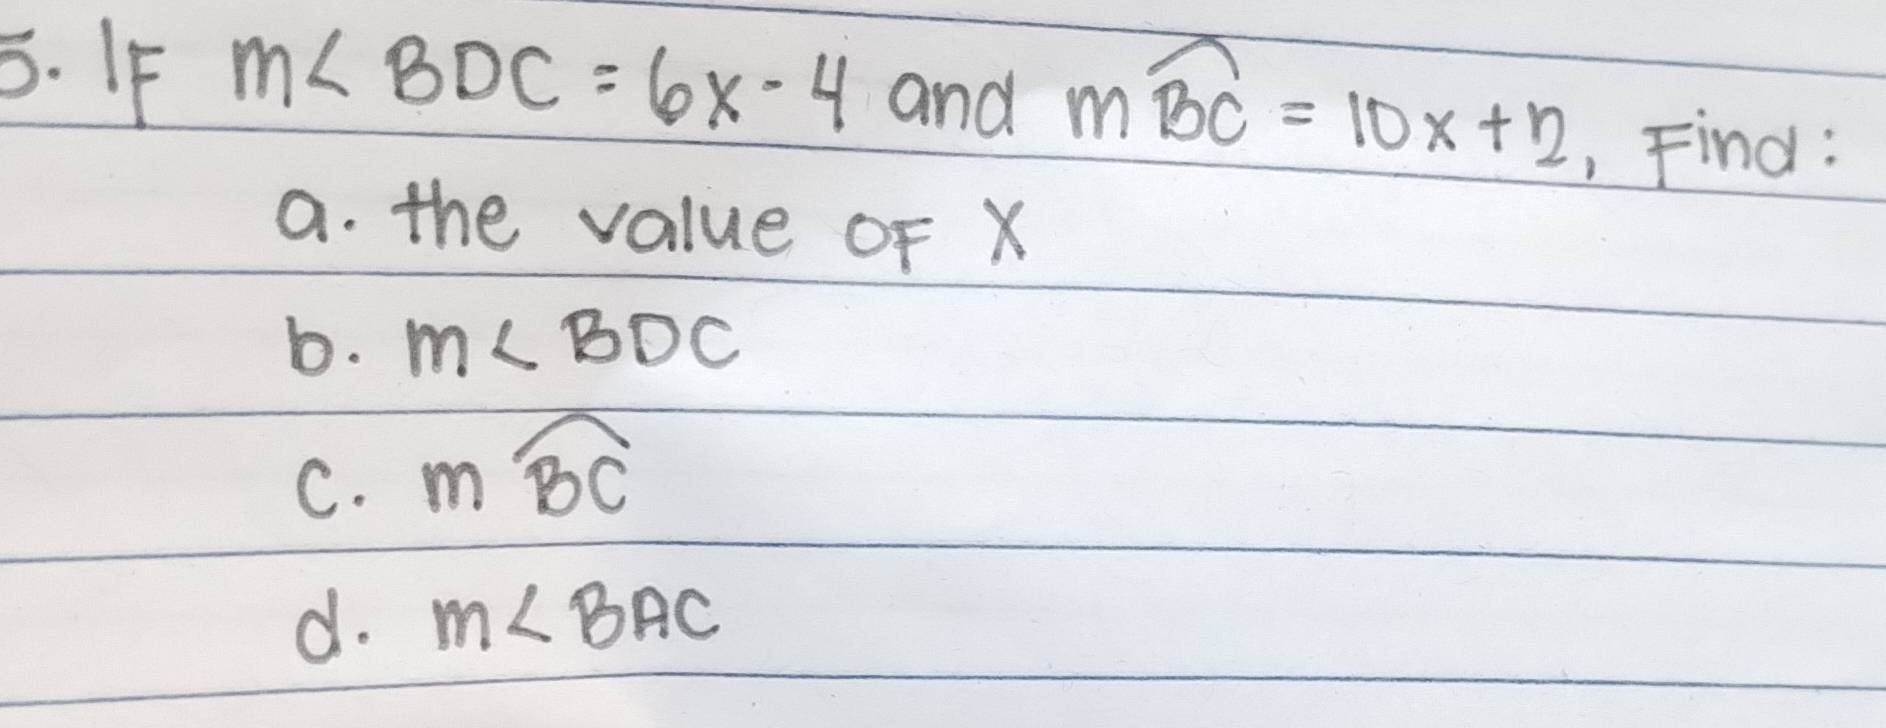 5. If m< BDC = 6x - 4 and m B͡C = 10x + 2, Find :
a. the value of x
b. m < BDC
c. m B͡C
d. m < BAC